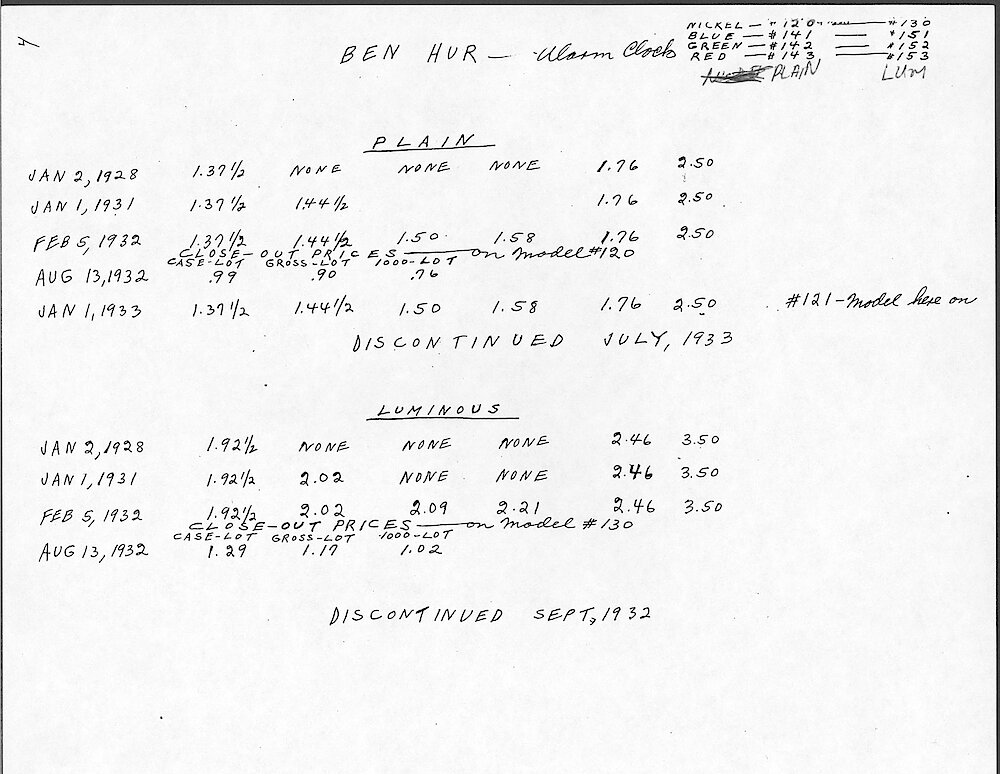 NICKEL — #120 — #130
BLUE — #141 — #151
BEN HUR — Alarm Clock GREEN — #142 — #152
RED — #143 — #153
PLAIN LUM
PLAIN
JAN 2, 1928 1.37 1/2 NONE NONE NONE 1.76 2.50
JAN 1, 1931 1.37 1/2 1.44 1/2 1.76 2.50
FEB 5, 1932 1.37 1/2 1.44 1/2 1.50 1.58 1.76 2.50
CLOSE-OUT PRICES — on Model #120
CASE-LOT GROSS-LOT 1000-LOT
AUG 13, 1932 .99 .90 .76
JAN 1, 1933 1.37 1/2 1.44 1/2 1.50 1.58 1.76 2.50 #121-Model here on
DISCONTINUED JULY, 1933
LUMINOUS
JAN 2, 1928 1.92 1/2 NONE NONE NONE 2.46 3.50
JAN 1, 1931 1.92 1/2 2.02 NONE NONE 2.46 3.50
FEB 5, 1932 1.92 1/2 2.02 2.09 2.21 2.46 3.50
CLOSE-OUT PRICES — on Model #130
CASE-LOT GROSS-LOT 1000-LOT
AUG 13, 1932 1.29 1.17 1.02
DISCONTINUED SEPT, 1932